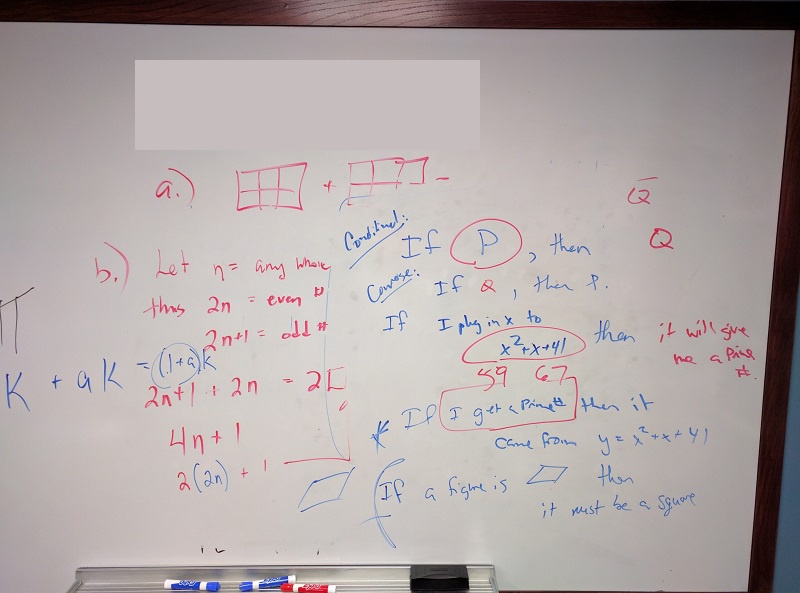 a.) + -
b.) Let n = any whole
thus 2n = even #
2n+1 = odd #
K + aK = (1+a)K
2n+1 + 2n = 2[
4n+1
2(2n) + 1
Q
Q
Conditional: If P, then
Converse: If Q, then P.
If I plug in x to
x²+x+41 then it will give
me a Prime
#.
59 67
* If I get a Prime # then it
came from y = x²+x+41
If a figure is then
it must be a square